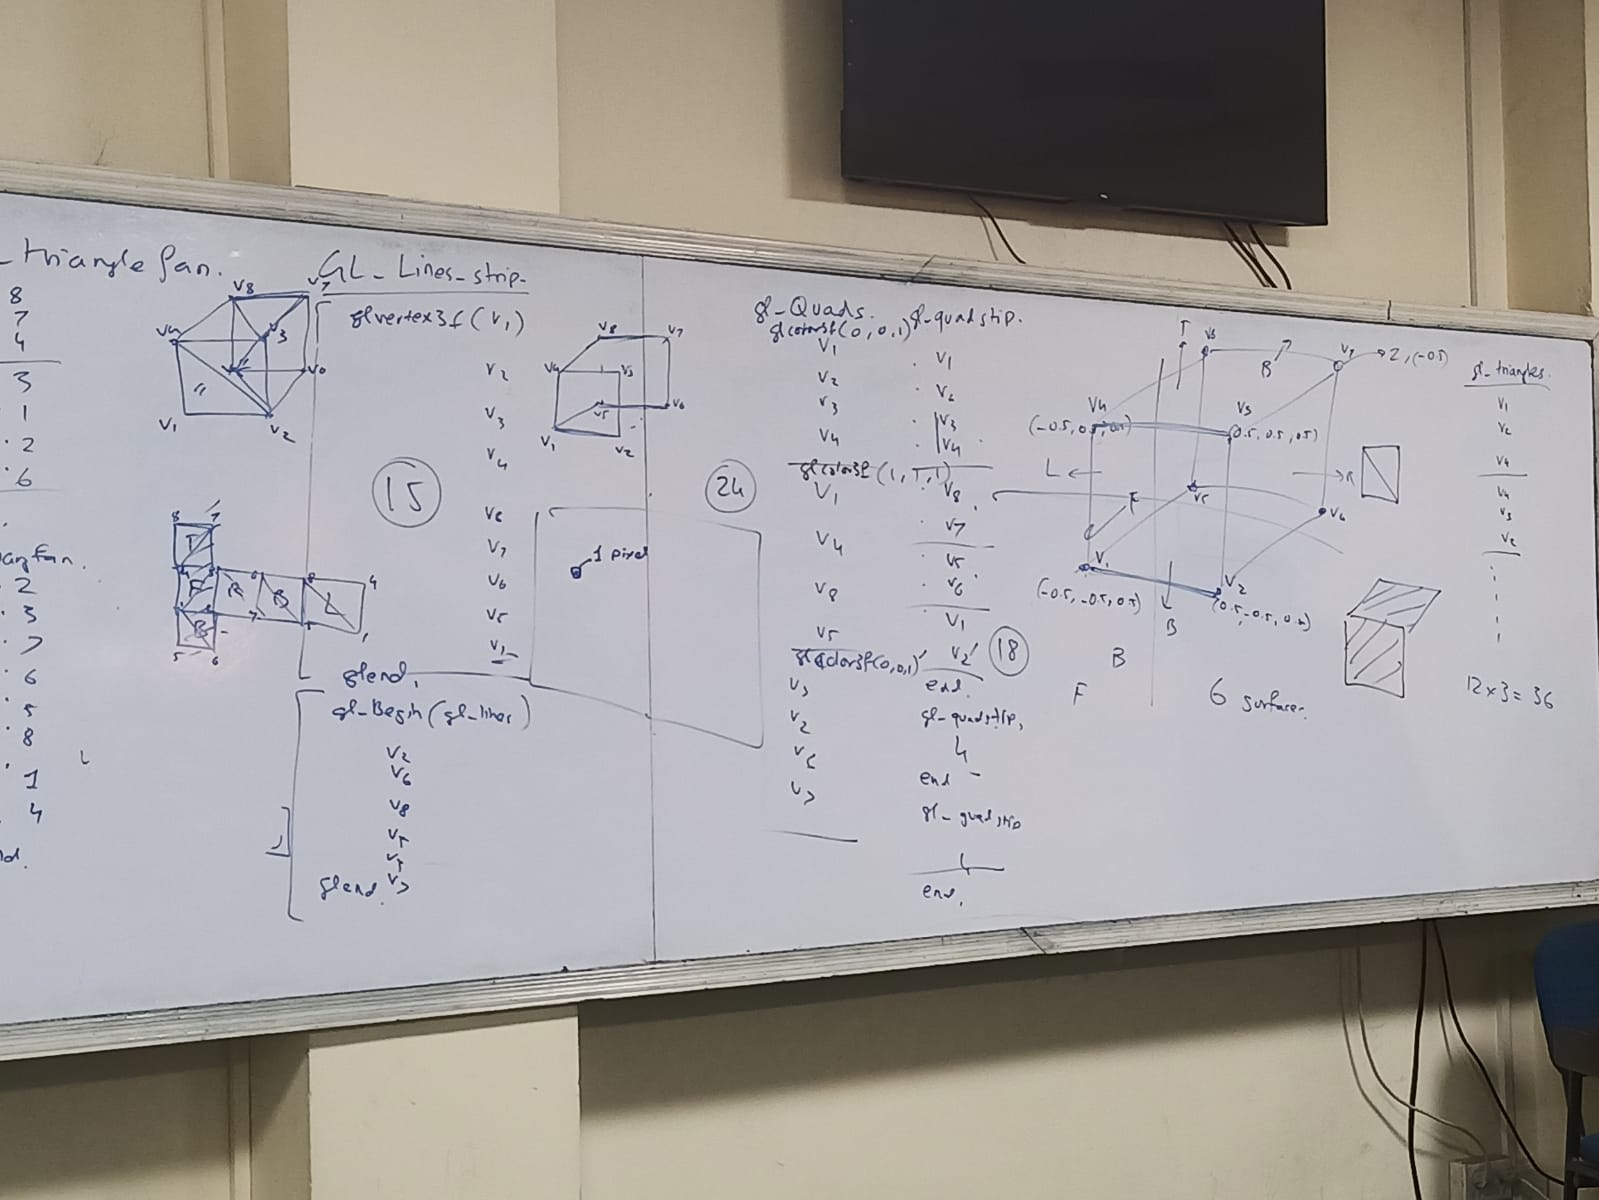 triangle fan.
8
7
4
3
1
2
6
2
3
7
6
5
8
1
4
V8
V4
V3
V1
V2
8 7
5 6
4
GL_Lines_strip
glvertex3f(V1)
V2
V3
V4
V8
V7
V6
V5
V1
glend,
15
gl_Begin(gl_lines)
V2
V6
V8
glend
V8
V7
V4
V3
V5
V6
V1
V2
1 pixel
24
gl_Quads.
glcolor3f(0,0,1)
V1
V2
V3
V4
glcolor3f(1,1,1)
V1
V4
V8
V5
glcolor3f(0,0,1)
V3
V2
V6
V7
gl_quadstip.
V1
V2
V3
V4
V8
V7
V5
V6
V1
V2
end.
gl_quadstip,
4
end
gl_quadstip
4
end,
18
T
V8
B
V7
Z,(-0.5)
V4
V3
(0.5, 0.5, 0.5)
L
R
F
V5
V6
V1
(-0.5, -0.5, 0.5)
V2
B
B
F
6 surfaces
gl_triangles.
V1
V2
V4
V4
V3
V2
12x3=36